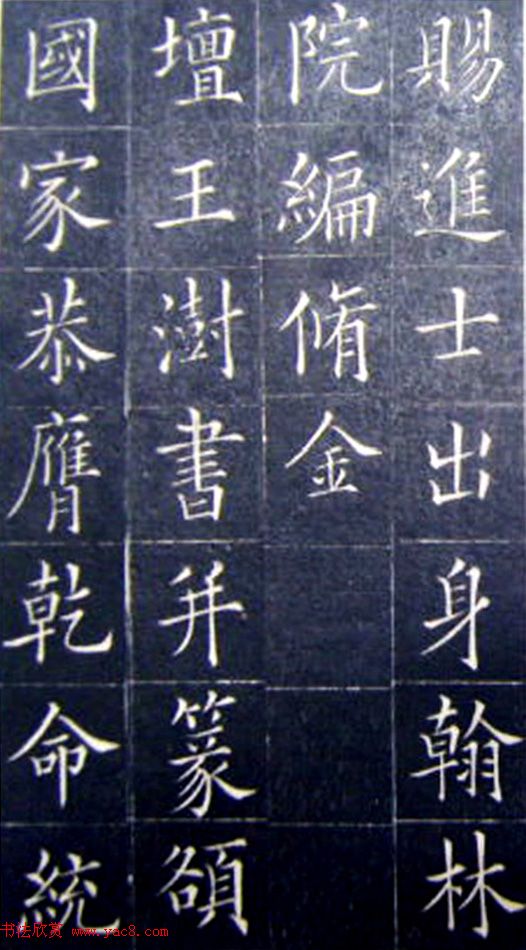 賜進士出身翰林
院編脩金
壇王澍書并篆額
國家恭膺乾命統
书法欣赏 www.yac8.com